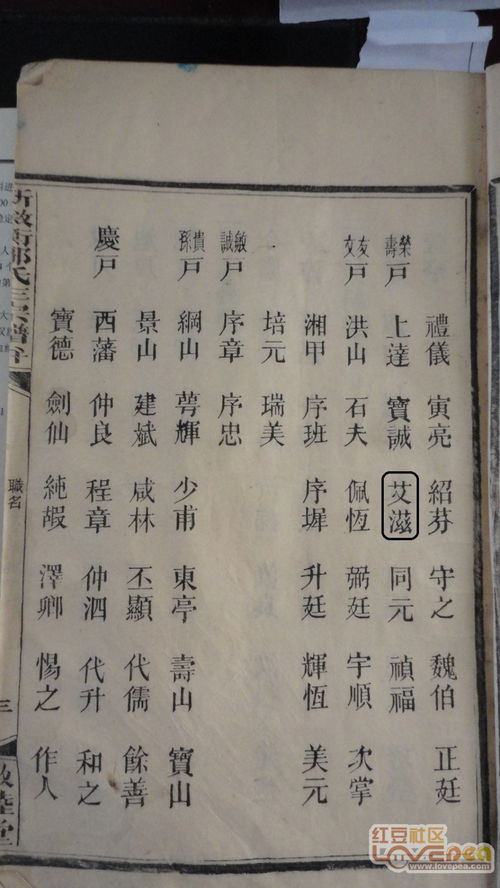 禮儀 寅亮 紹芬 守之 魏伯 正廷
榮壽戶 上達 寶誠 艾滋 同元 禎福
友文戶 洪山 石夫 佩恆 弼廷 宇順 次掌
湘甲 序班 序墀 升廷 輝恆 美元
一 培元 瑞美
敏誠戶 序章 序忠
貴孫戶 綱山 萼輝 少甫 東亭 壽山 寶山
景山 建斌 咸林 丕顯 代儒 餘善
慶戶 西藩 仲良 程章 仲泗 代升 和之
寶德 劍仙 純嘏 澤卿 惕之 作人
氏 宗譜
職名
三
睦堂
红豆社区
Lovepea
www.lovepea.com